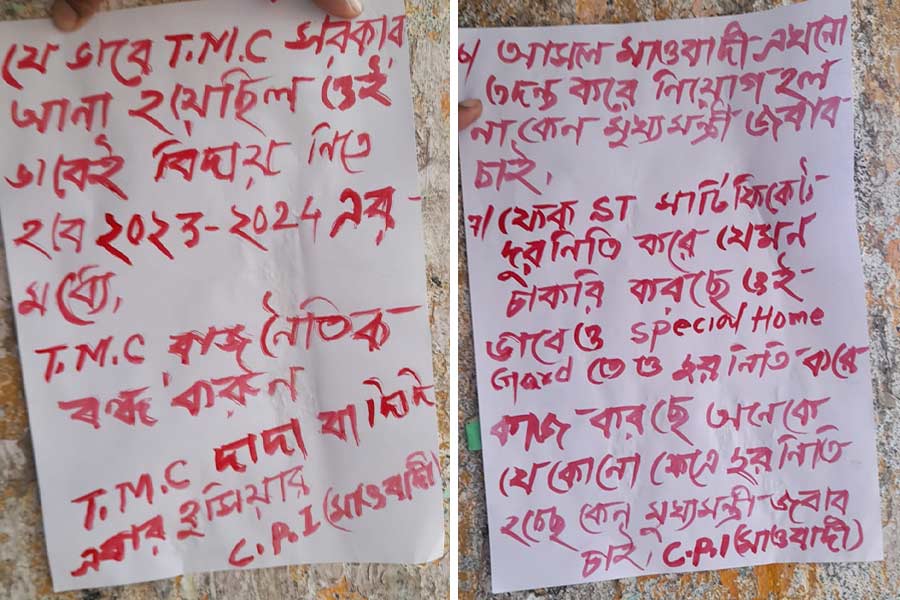 যে ভাবে T.M.C সরকার
আনা হয়েছিল ওই
ভাবেই বিদায় নিতে
হবে ২০২৩-২০24 এর
মধ্যে,
T.M.C রাজনৈতিক
বন্ধ করুন
T.M.C দাদা বা দিদি
এবার হুসিয়ার
C.P.I (মাওবাদী)
৬/ আসল মাওবাদী এখনো
তদন্ত করে নিয়োগ হল
না কেন মুখ্যমন্ত্রী জবাব
চাই,
৭/ ফেক ST সার্টিফিকেট
দুরনিতি করে যেমন
চাকরি করছে ওই
ভাবে ও Special Home
Guard তে ও দুরনিতি করে
কাজ করছে অনেকে
যে কোনো ক্ষেত্রে দুরনিতি
হচ্ছে কেন মুখ্যমন্ত্রী জবাব
চাই, C.P.I (মাওবাদী)